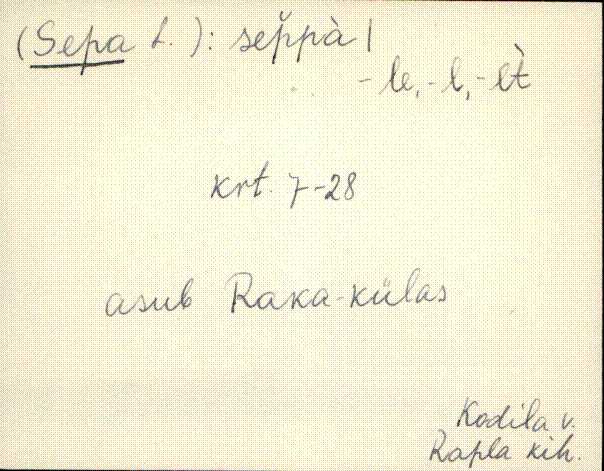 (Sepa t.): sep̆pà|
-le, -l, -lt̀
krt. 7-28
asub Raka-külas
Kodila v.
Rapla kih.